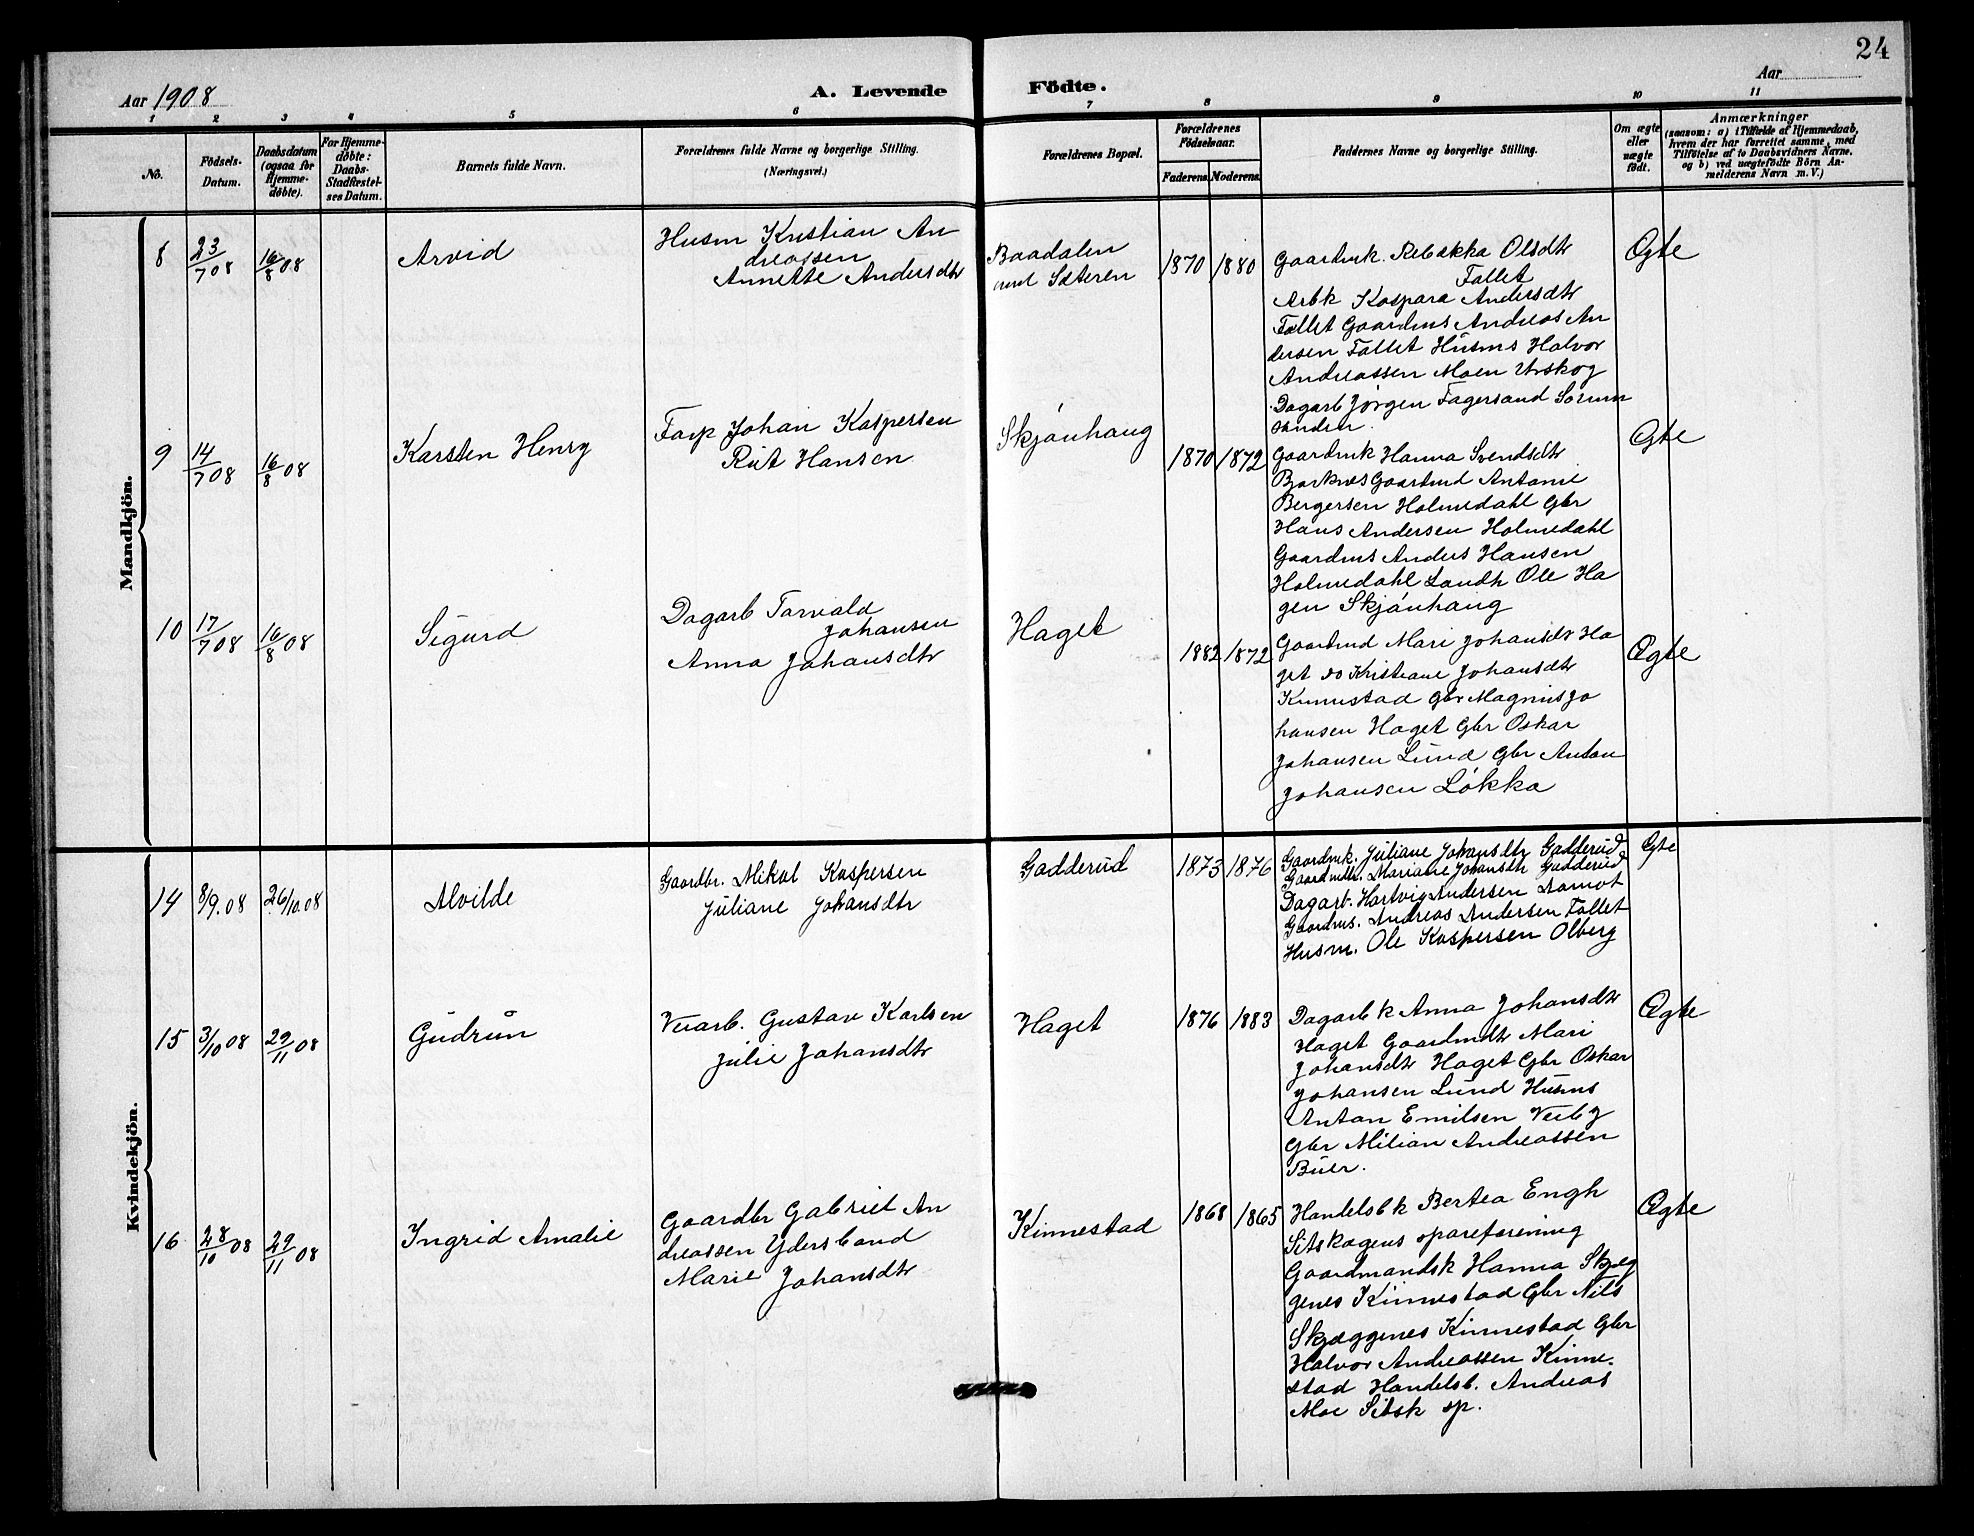 24
Aar 1908
A. Levende
Födte.
Aar
1 2 3 4 5 6 7 8 9 10 11
No.
Födsels-
Datum.
Daabsdatum
(ogsaa för
Hjemme-
döbte).
For Hjemme-
döbte:
Daabs-
Stadfæstel-
ses Datum.
Barnets fulde Navn.
Forældrenes fulde Navne og borgerlige Stilling.
(Næringsvei.)
Forældrenes Bopæl.
Forældrenes
Födselsaar.
Faderens. Moderens.
Faddernes Navne og borgerlige Stilling.
Om ægte
eller
uægte
födt.
Anmærkninger
(saasom: a) i Tilfælde af Hjemmedaab,
hvem der har forrettet samme, med
Tilföielse af to Daabsvidners Navne.
og b) ved uægtefödte Börn An-
melderens Navn m. V.)
Mandkjön.
8
23/7 08
16/8 08
Arvid
Husm Kristian An
dreassen
Annette Andersdtr
Baadalen
und Sæteren
1870
1880
Gaardmk. Rebekka Olsdtr
Fallet
Arbk Kaspara Andersdtr
Fallet Gaardms Andreas An
dersen Fallet Husms Halvor
Andreassen Moen Urskog
Dagarb Jørgen Fagersand Sörum
sanden.
Ægte
9
14/7 08
16/8 08
Karsten Henry
Forp Johan Kaspersen
Rut Hansen
Skjønhaug
1870
1872
Gaardmk Hanna Svendsdtr
Bjørknes Gaardmd Antonie
Bergersen Holmedahl Gbr
Hans Andersen Holmedahl
Gaardms Anders Hansen
Holmedahl Landh Ole Ha
gen Skjønhaug
Ægte
10
17/7 08
16/8 08
Sigurd
Dagarb Torvald
Johansen
Anna Johansdtr
Haget
1882
1872
Gaardmd Mari Johansdtr Ha
get do Kristiane Johansdtr
Kinnestad Gbr Magnus Jo
hansen Haget Gbr Oskar
Johansen Lund Gbr Anton
Johansen Løkka
Ægte
Kvindekjön.
14
8/9. 08
26/10. 08
Alvilde
Gaardbr. Mikal Kaspersen
Juliane Johansdtr
Gadderud
1873
1876
Gaardmk. Juliane Johansdtr Gadderud
Gaardmdtr. Mariane Johansdtr Gadderud
Dagarb. Hartvig Andersen Aamot
Gaardms. Andreas Andersen Fallet
Husm. Ole Kaspersen Olberg
Ægte
15
3/10 08
29/11 08
Gudrun
Veiarb. Gustav Karlsen
Julie Johansdtr
Haget
1876
1883
Dagarb k Anna Johansdtr
Haget Gaardmdtr Mari
Johansdtr Haget Gbr Oskar
Johansen Lund Husms
Anton Emilsen Veiby
Gbr Milian Andreassen
Buer.
Ægte
16
28/10 08
29/11 08
Ingrid Amalie
Gaardbr Gabriel An
dreassen Ydersbond
Marie Johansdtr
Kinnestad
1868
1865
Handelsbk Bertea Engh
Sitskogens spareforening
Gaardmandsk Hanna Skjeg
genes Kinnestad Gbr Nils
Skjæggenes Kinnestad Gbr
Halvor Andreassen Kinne-
stad Handelsb. Andreas
Moe Sitsk sp.
Ægte